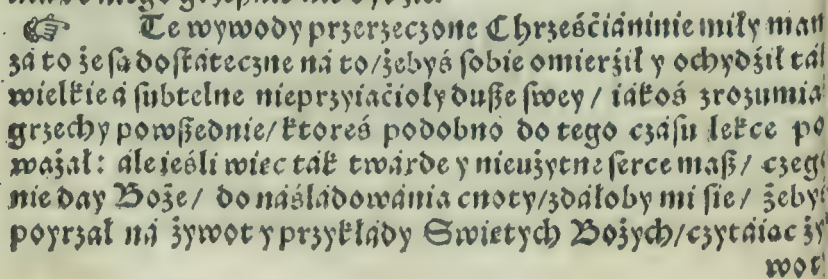 ☞ Te wywody przerzeczone Chrześćiáninie miły mam
zá to że są dostáteczne ná to/żebyś sobie omierźił y ochydźił ták
wielkie á subtelne nieprzyiaćioły dusze swey / iákoś zrozumiał
grzechy powszednie/ktoreś podobno do tego czásu lekce po
ważał: ále ieśli wiec ták twárde y nieużytne serce masz/ czego
nie day Boże/ do náśládowánia cnoty/zdáłoby mi sie/ żebyś
poyrzał ná żywot y przykłády Swietych Bożych/czytáiac ży
wot